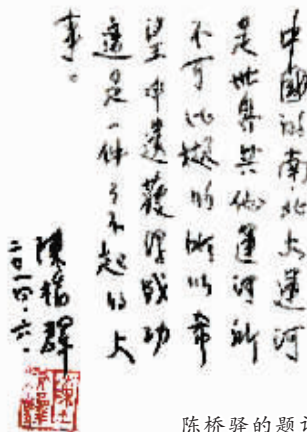 中国的南北大运河
是世界其他运河所
不可比拟的所以希
望申遗获得成功
这是一件了不起的大
事。
陈桥驿
二〇一四.六.
陈桥驿的题词